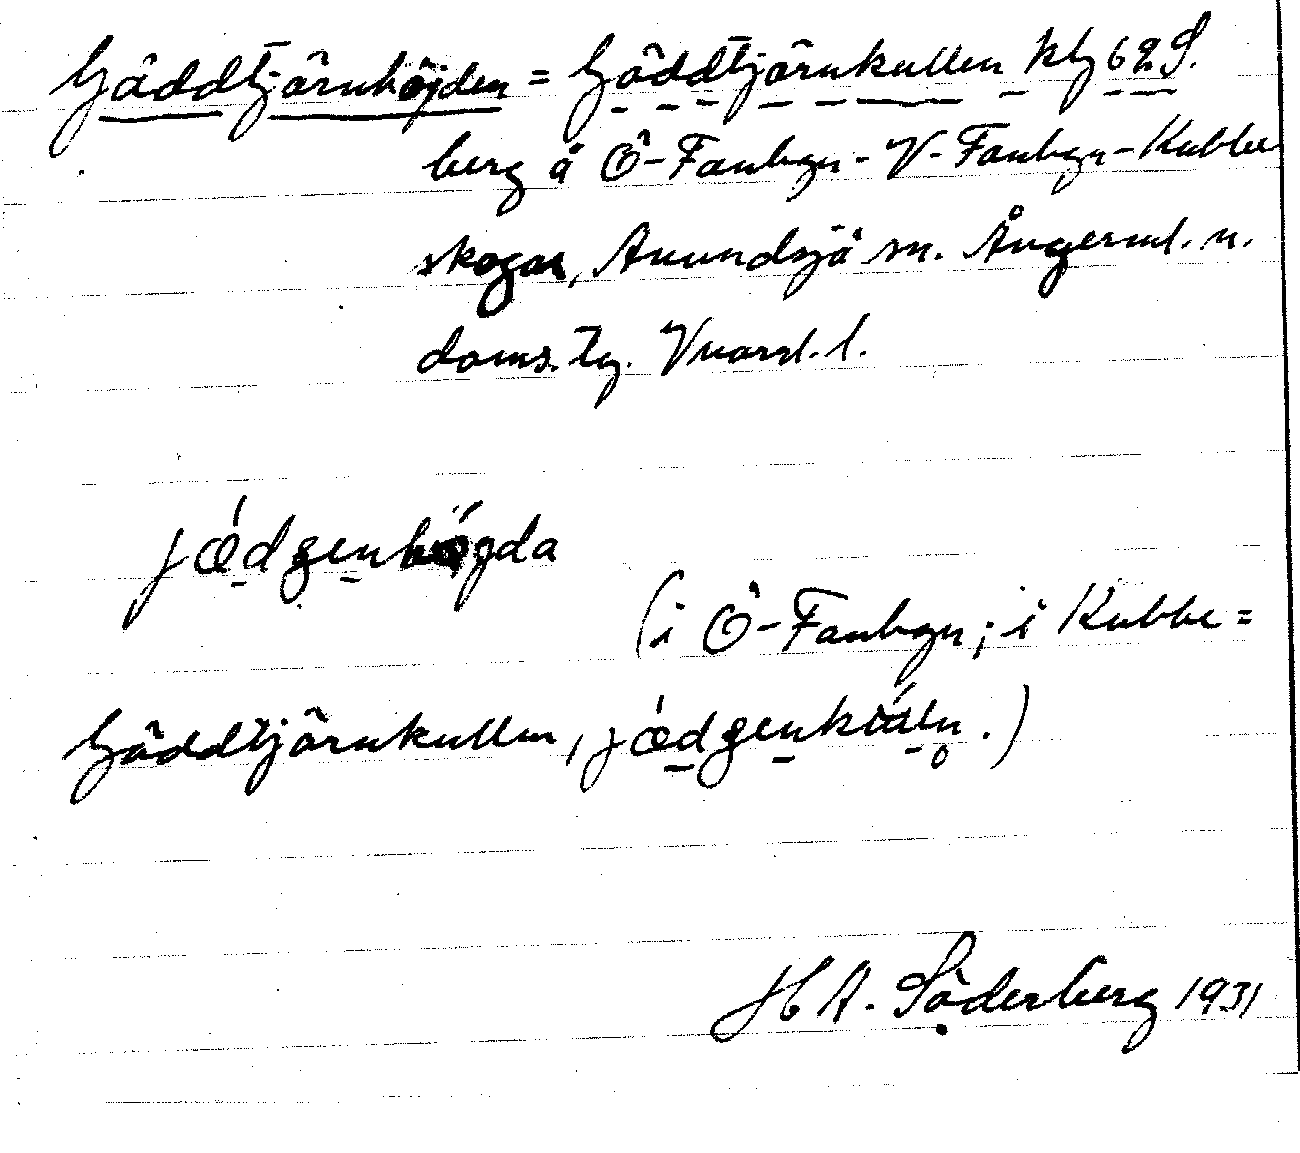 Gäddtjärnhöjden = Gäddtjärnkullen kbl 62 S.
berg å Ö-Fanbyn - V-Fanbyn - Kubbe
skogar, Anundsjö sn. Ångerml. n.
doms. tg. Vnorrl. l.
jǽdgenhö́gda
(i Ö-Fanbyn; i Kubbe =
Gäddtjärnkullen, jǽdgenkúln̥.)
H A. Söderberg 1931